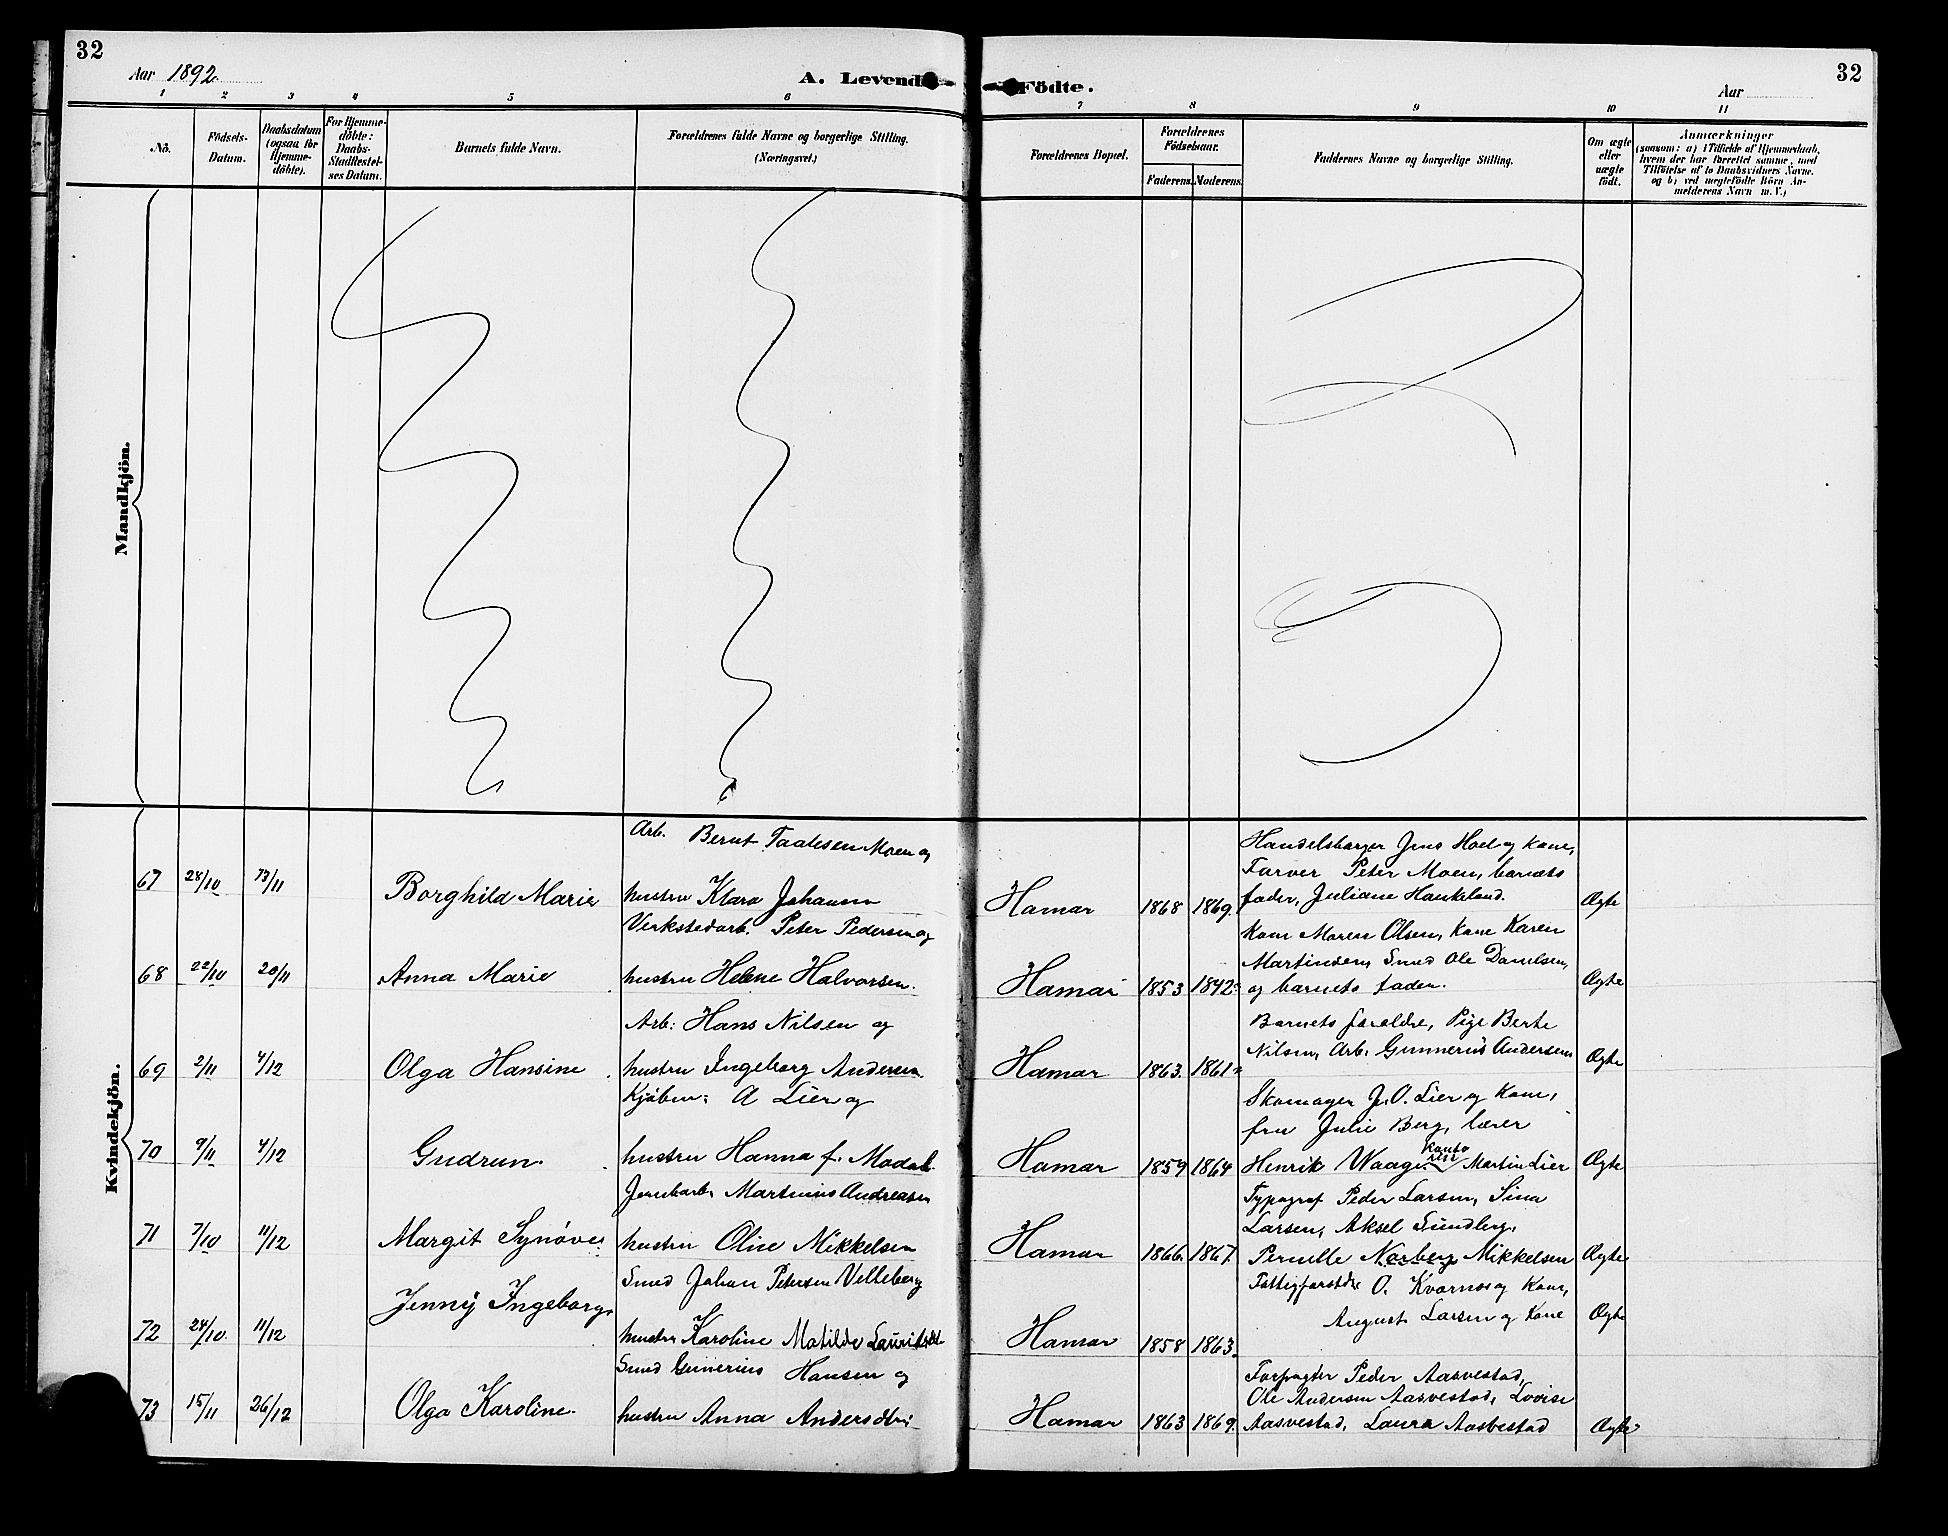 32
Aar 1892.
A. Levende
Födte.
Aar
32
1 2 3 4 5 6 7 8 9 10 11
No.
Födsels-Datum.
Daabsdatum (ogsaa for Hjemme-döbte).
For Hjemme-döbte: Daabs-Stadfestel-ses Datum.
Barnets fulde Navn.
Forældrenes fulde Navne og borgerlige Stilling.
(Næringsvei.)
Forældrenes Bopæl.
Forældrenes Födselsaar.
Faderens. Moderens.
Faddernes Navne og borgerlige Stilling.
Om ægte eller uægte födt.
Anmærkninger
(saasom: a) i Tilfælde af Hjemmedaab,
hvem der har forrettet samme, med
Tilföielse af to Daabsvidners Navne.
og b) ved uægtefödte Börn An-
melderens Navn m. V.)
Mandkjön.
Kvindekjön.
Arb. Bernt Taalesen Moen og
67 28/10 13/11 Borghild Marie hustru Klara Johansen Hamar 1868 1869.
Handelsborger Jens Hoel og kone,
Farver Peter Moen, barnets
fader, Juliane Haukeland. Ægte
Verkstedarb. Peter Pedersen og
68 22/10 20/11 Anna Marie hustru Helene Halvorsen. Hamar 1853 1842.
Kone Maren Olsen, Kone Karen
Martinsen, Smed Ole Danielsen,
og barnets fader. Ægte
Arb. Hans Nilsen og
69 2/11 4/12 Olga Hansine hustru Ingeborg Andersen Hamar 1863. 1861.
Barnets forældre, Pige Berte
Nilsen, Arb. Gunnerius Andersen Ægte
Kjøbm. A Lier og
70 9/11 4/12 Gudrun. hustru Hanna f. Hamar 1859 1864
Skomager J. O. Lier og Kone,
fru Julie Berg, lærer
Henrik Waage, Martin Lier Ægte
Jernbarb. Martinius Andreasen
71 7/10 11/12 Margit Synøve hustru Oline Mikkelsen Hamar 1866. 1867.
Typograf Peder Larsen, Sina
Larsen, Aksel Sundberg,
Pernille Norberg Mikkelsen Ægte
Smed Johan Petersen Velleberg
72 24/10. 11/12 Jenny Ingeborg hustru Karoline Matilde Hamar 1858 1863.
O. Kvarnes og Kone,
August Larsen og Kone Ægte
Smed Gunerius Hansen og
73 15/11 26/12 Olga Karoline. hustru Anna Andersdtr. Hamar 1863 1869.
Forpagter Peder Aasvestad,
Ole Andersen Aasvestad, Lovise
Aasvestad, Laura Aasvestad Ægte